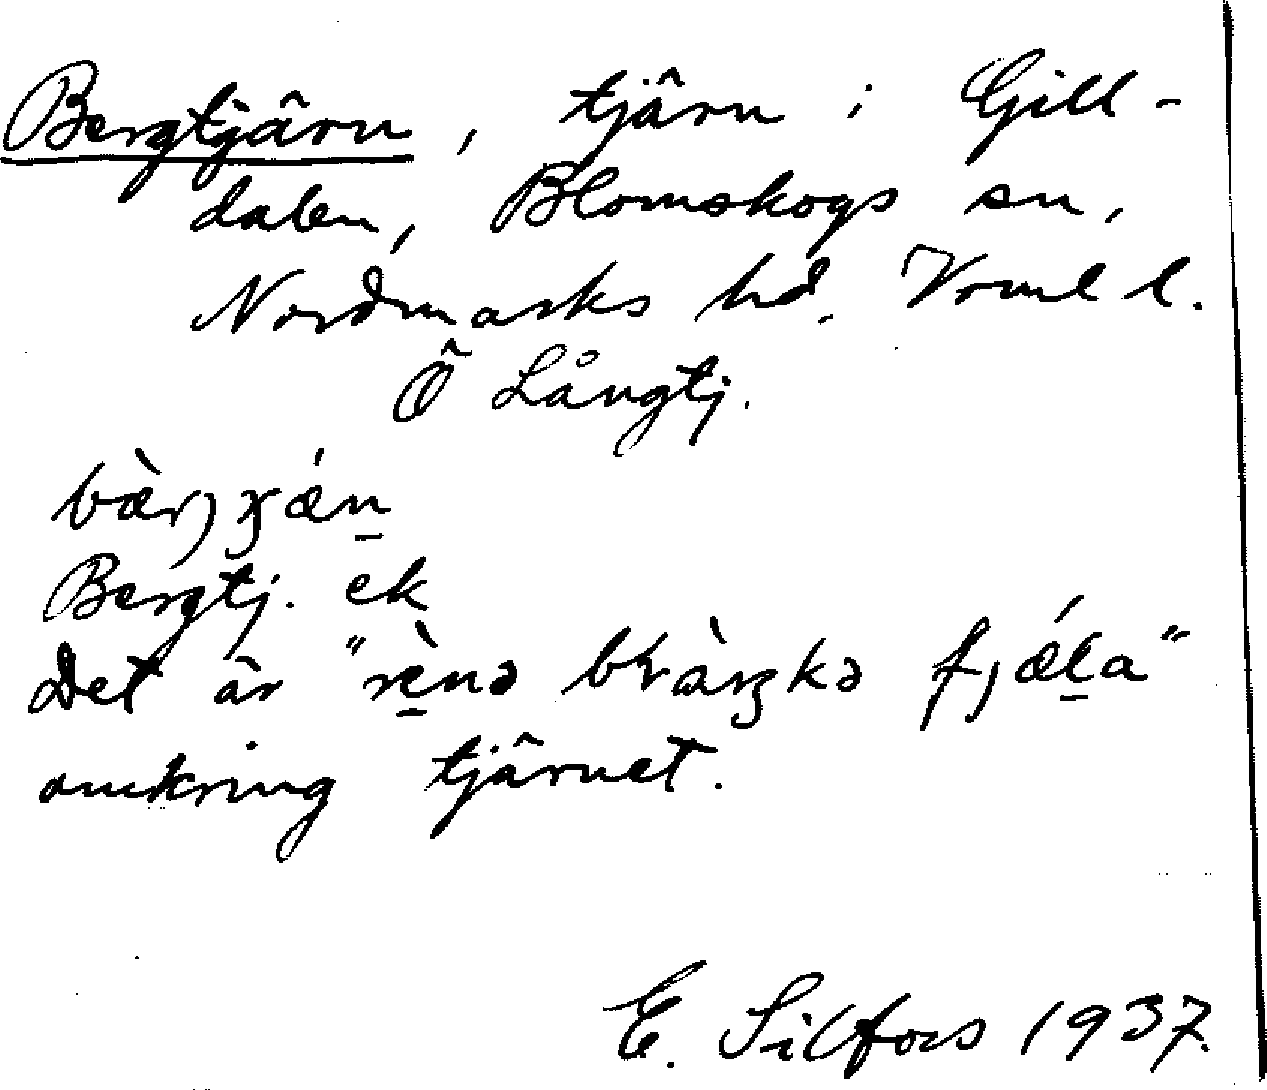 Bergtjärn, tjärn i Gill-
dalen, Blomskogs sn,
Nordmarks hd. Vrml l.
Ö Långtj.
bæ̀rj ɟǽn̠
Bergtj. ek
Det är "rè̠nə bràŋkə fjǽl̠a"
omkring tjärnet.
E. Silfors 1937.